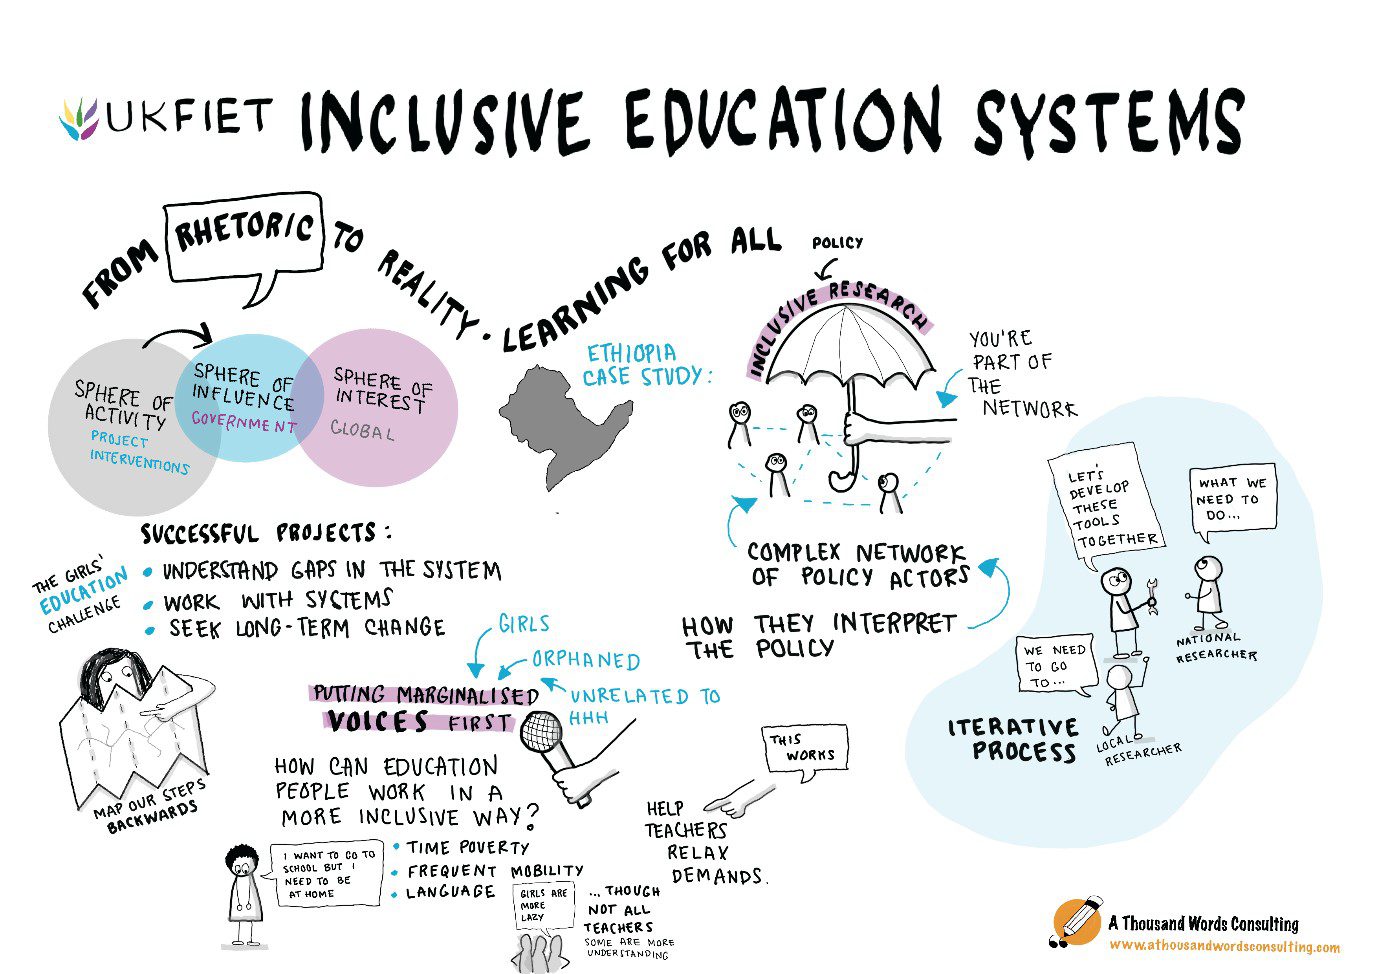 UKFIET INCLUSIVE EDUCATION SYSTEMS
FROM RHETORIC TO REALITY · LEARNING FOR ALL
SPHERE OF
ACTIVITY
PROJECT
INTERVENTIONS
SPHERE OF
INFLUENCE
GOVERNMENT
SPHERE OF
INTEREST
GLOBAL
ETHIOPIA
CASE STUDY:
POLICY
INCLUSIVE RESEARCH
YOU'RE
PART OF
THE
NETWORK
COMPLEX NETWORK
OF POLICY ACTORS
HOW THEY INTERPRET
THE POLICY
SUCCESSFUL PROJECTS:
• UNDERSTAND GAPS IN THE SYSTEM
• WORK WITH SYSTEMS
• SEEK LONG-TERM CHANGE
THE GIRLS'
EDUCATION
CHALLENGE
MAP OUR STEPS
BACKWARDS
GIRLS
ORPHANED
UNRELATED TO
HHH
PUTTING MARGINALISED
VOICES FIRST
HOW CAN EDUCATION
PEOPLE WORK IN A
MORE INCLUSIVE WAY?
I WANT TO GO TO
SCHOOL BUT I
NEED TO BE
AT HOME
• TIME POVERTY
• FREQUENT MOBILITY
• LANGUAGE
GIRLS ARE
MORE
LAZY
... THOUGH
NOT ALL
TEACHERS
SOME ARE MORE
UNDERSTANDING
THIS
WORKS
HELP
TEACHERS
RELAX
DEMANDS.
LET'S
DEVELOP
THESE
TOOLS
TOGETHER
WHAT WE
NEED TO
DO...
NATIONAL
RESEARCHER
WE NEED
TO GO
TO...
LOCAL
RESEARCHER
ITERATIVE
PROCESS
A Thousand Words Consulting
www.athousandwordsconsulting.com